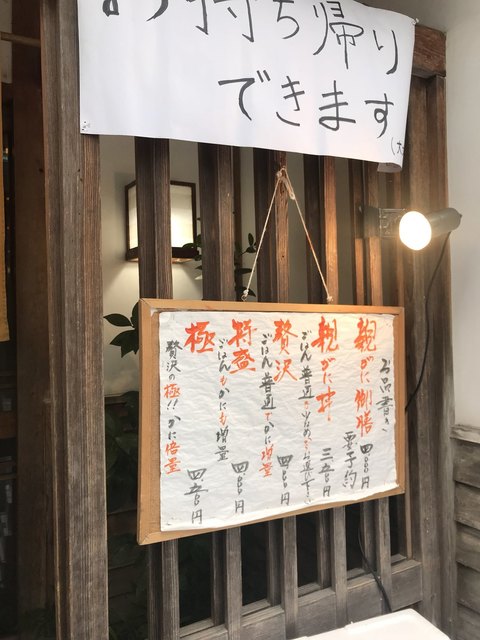 お持ち帰り
できます
お品書き
親がに御膳 四〇〇〇円
要予約
親がに丼 三、五〇〇円
ごはん普通
贅沢 四〇〇〇円
ごはん普通でかに増量
特盛 四〇〇〇円
ごはんもかにも増量
極 四、五〇〇円
贅沢の極!!かに倍量